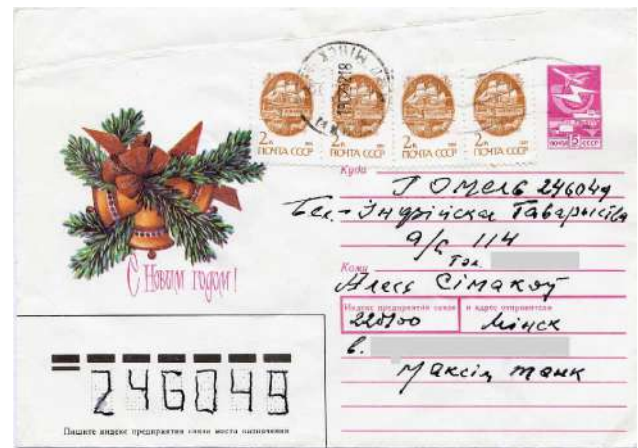 МІНСК
2к ПОЧТА СССР
2к ПОЧТА СССР
2к ПОЧТА СССР
2к ПОЧТА СССР
ПОЧТА 5 СССР
Куда Гомель 246049
Бел-Індыйскае Таварыства
а/с 114
Тэл.
Кому Алесь Сімакоў
С Новым годом!
Индекс предприятия связи и адрес отправителя
220100 Мінск
в.
Максім Танк
246049
Пишите индекс предприятия связи места назначения